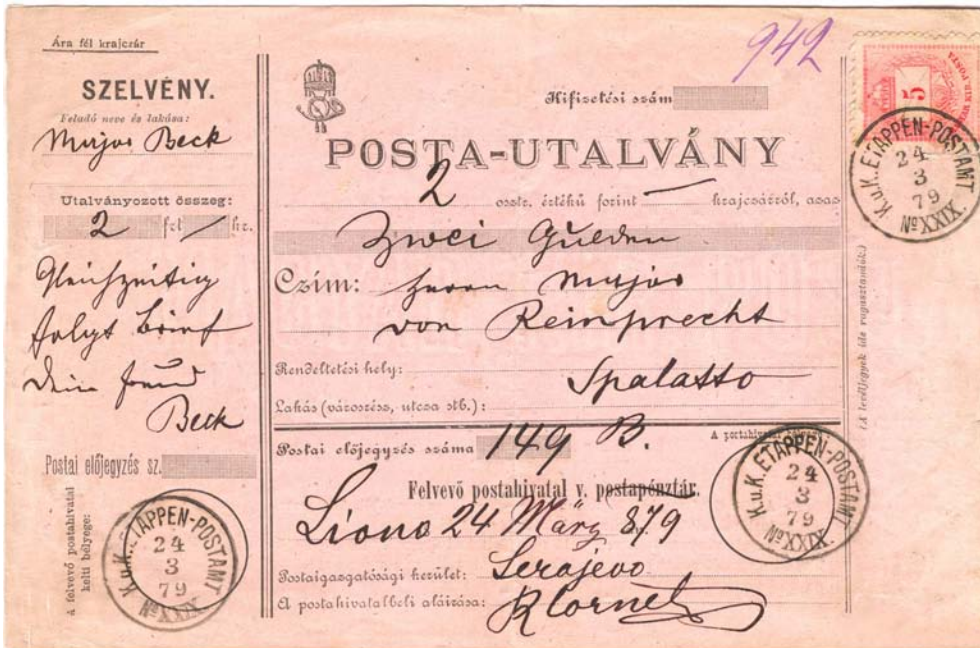 Ára fél krajczár
SZELVÉNY.
Feladó neve és lakása:
Major Beck
Utalványozott összeg:
2 frt — kr.
Gleichzeitig
folgt Brief
Dein Freund
Beck
Postai előjegyzés sz.
A felvevő postahivatal
kelti bélyege:
K.u.K. ETAPPEN-POSTAMT
24
3
79
No XXXIX.
942
Kifizetési szám
POSTA-UTALVÁNY
2 osztr. értékű forint — krajczárról, azaz
Zwei Gulden
Czím: Herrn Major
von Reimprecht
Rendeltetési hely: Spalatto
Lakás (városrész, utcza stb.):
Postai előjegyzés száma 149 B.
A postahivatal
Felvevő postahivatal v. postapénztár.
Liono 24 März 879
Postaigazgatósági kerület: Serajevo
A postahivatalbeli aláírása:
K.u.K. ETAPPEN-POSTAMT
24
3
79
No XXXIX.
5
K.u.K. ETAPPEN-POSTAMT
24
3
79
No XXXIX.
(A levéljegyek ide ragasztandók.)